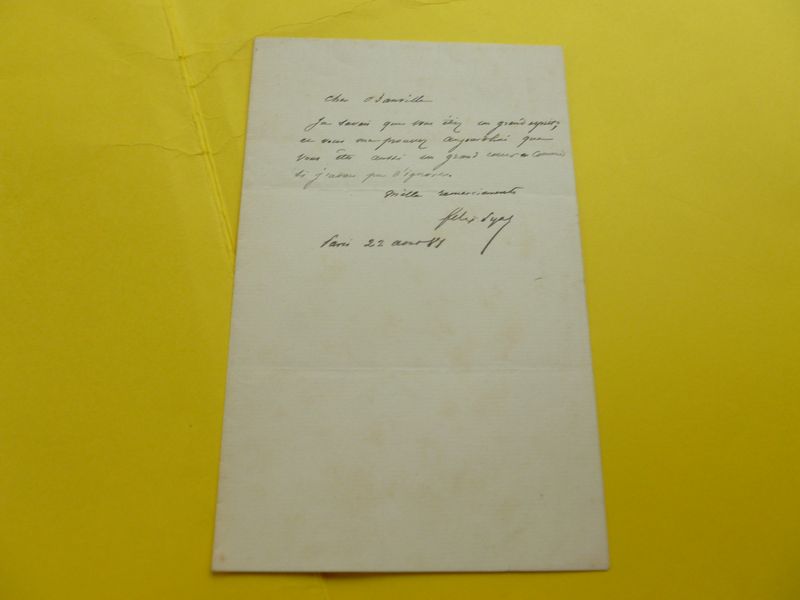 Cher Banville
Je savais que vous étiez un grand esprit,
et vous me prouvez aujourd'hui que
vous êtes aussi un grand cœur comme
si j'avais pu l'ignorer.
Mille remerciements
Félix Pyat
Paris 22 aout 81